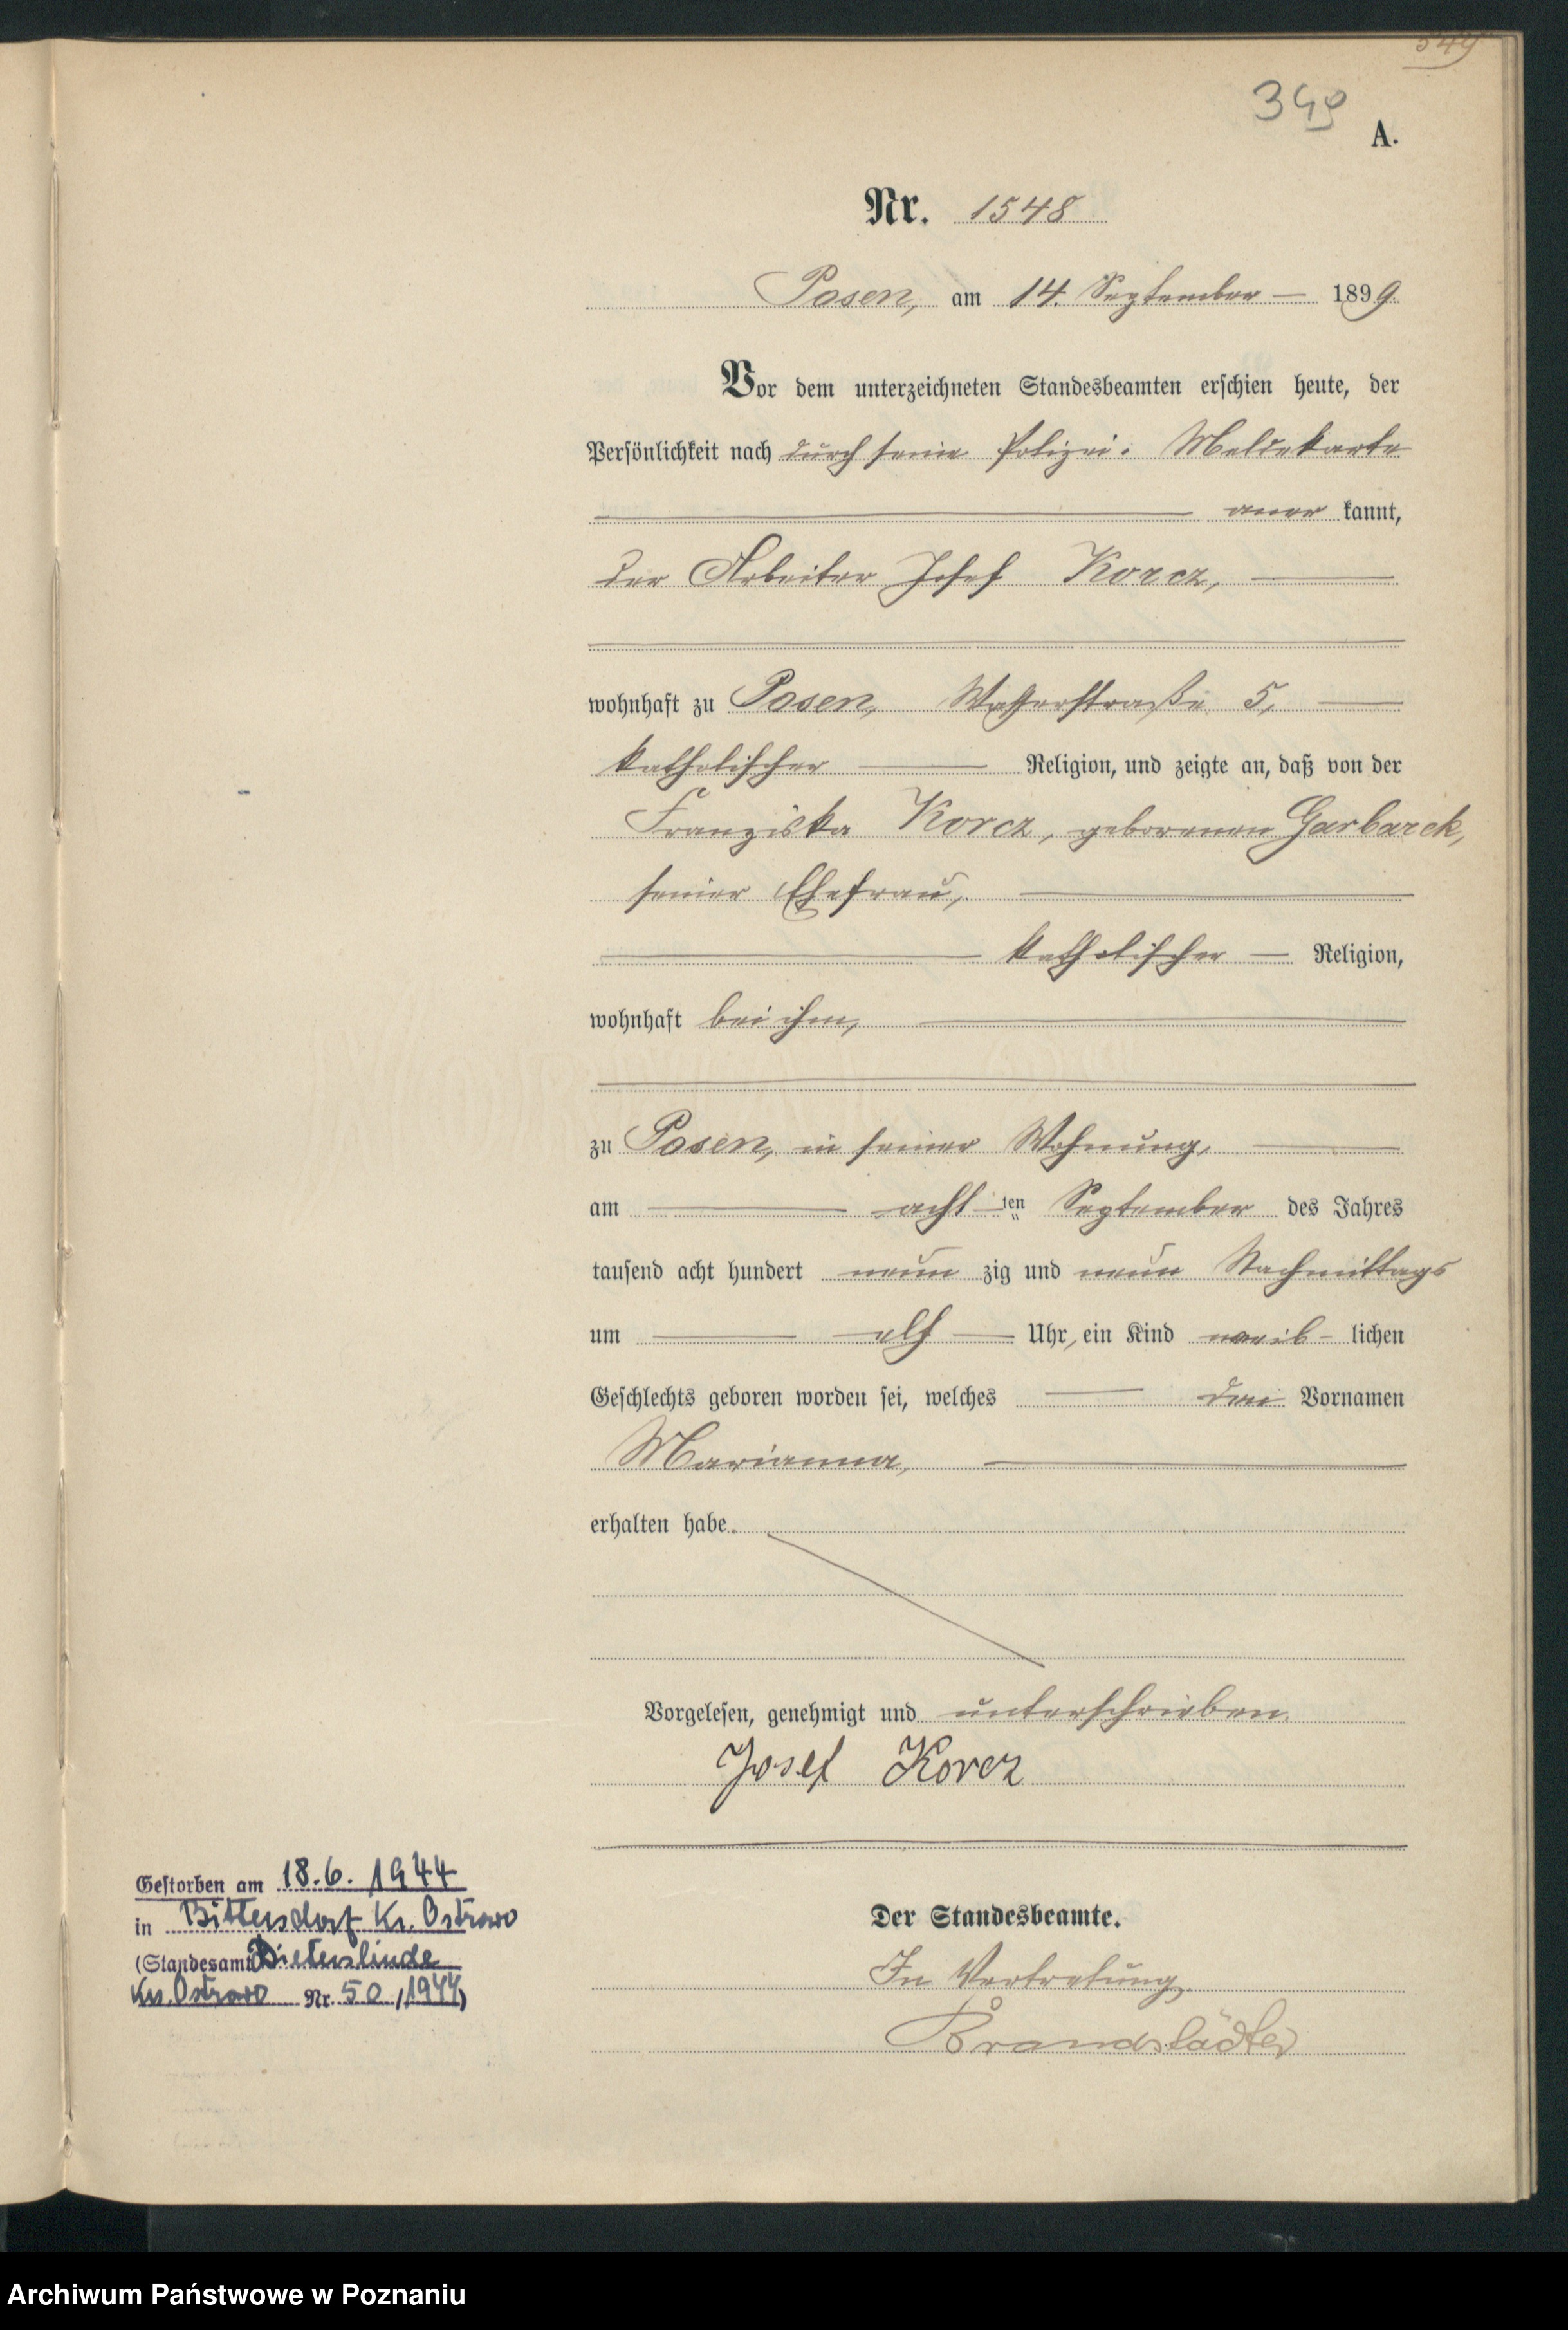 549
349
A.
Nr. 1548
Posen, am 14. September 1899.
Vor dem unterzeichneten Standesbeamten erschien heute, der
Persönlichkeit nach durch seine Polizei-Meldekarte
anerkannt,
der Arbeiter Josef Korcz,
wohnhaft zu Posen, Wasserstraße 5,
katholischer Religion, und zeigte an, daß von der
Franziska Korcz, geborenen Garbarek,
seiner Ehefrau,
katholischer Religion,
wohnhaft bei ihm,
zu Posen, in seiner Wohnung,
am achten September des Jahres
tausend acht hundert neunzig und neun Nachmittags
um elf Uhr, ein Kind weiblichen
Geschlechts geboren worden sei, welches den Vornamen
Marianna,
erhalten habe.
Vorgelesen, genehmigt und unterschrieben.
Josef Korcz
Der Standesbeamte.
In Vertretung.
Brandstädter
Gestorben am 18.6.1944
in Bittersdorf Kr. Ostrowo
(Standesamt Dieterslinde
Krs. Ostrowo Nr. 50/1944)
Archiwum Państwowe w Poznaniu